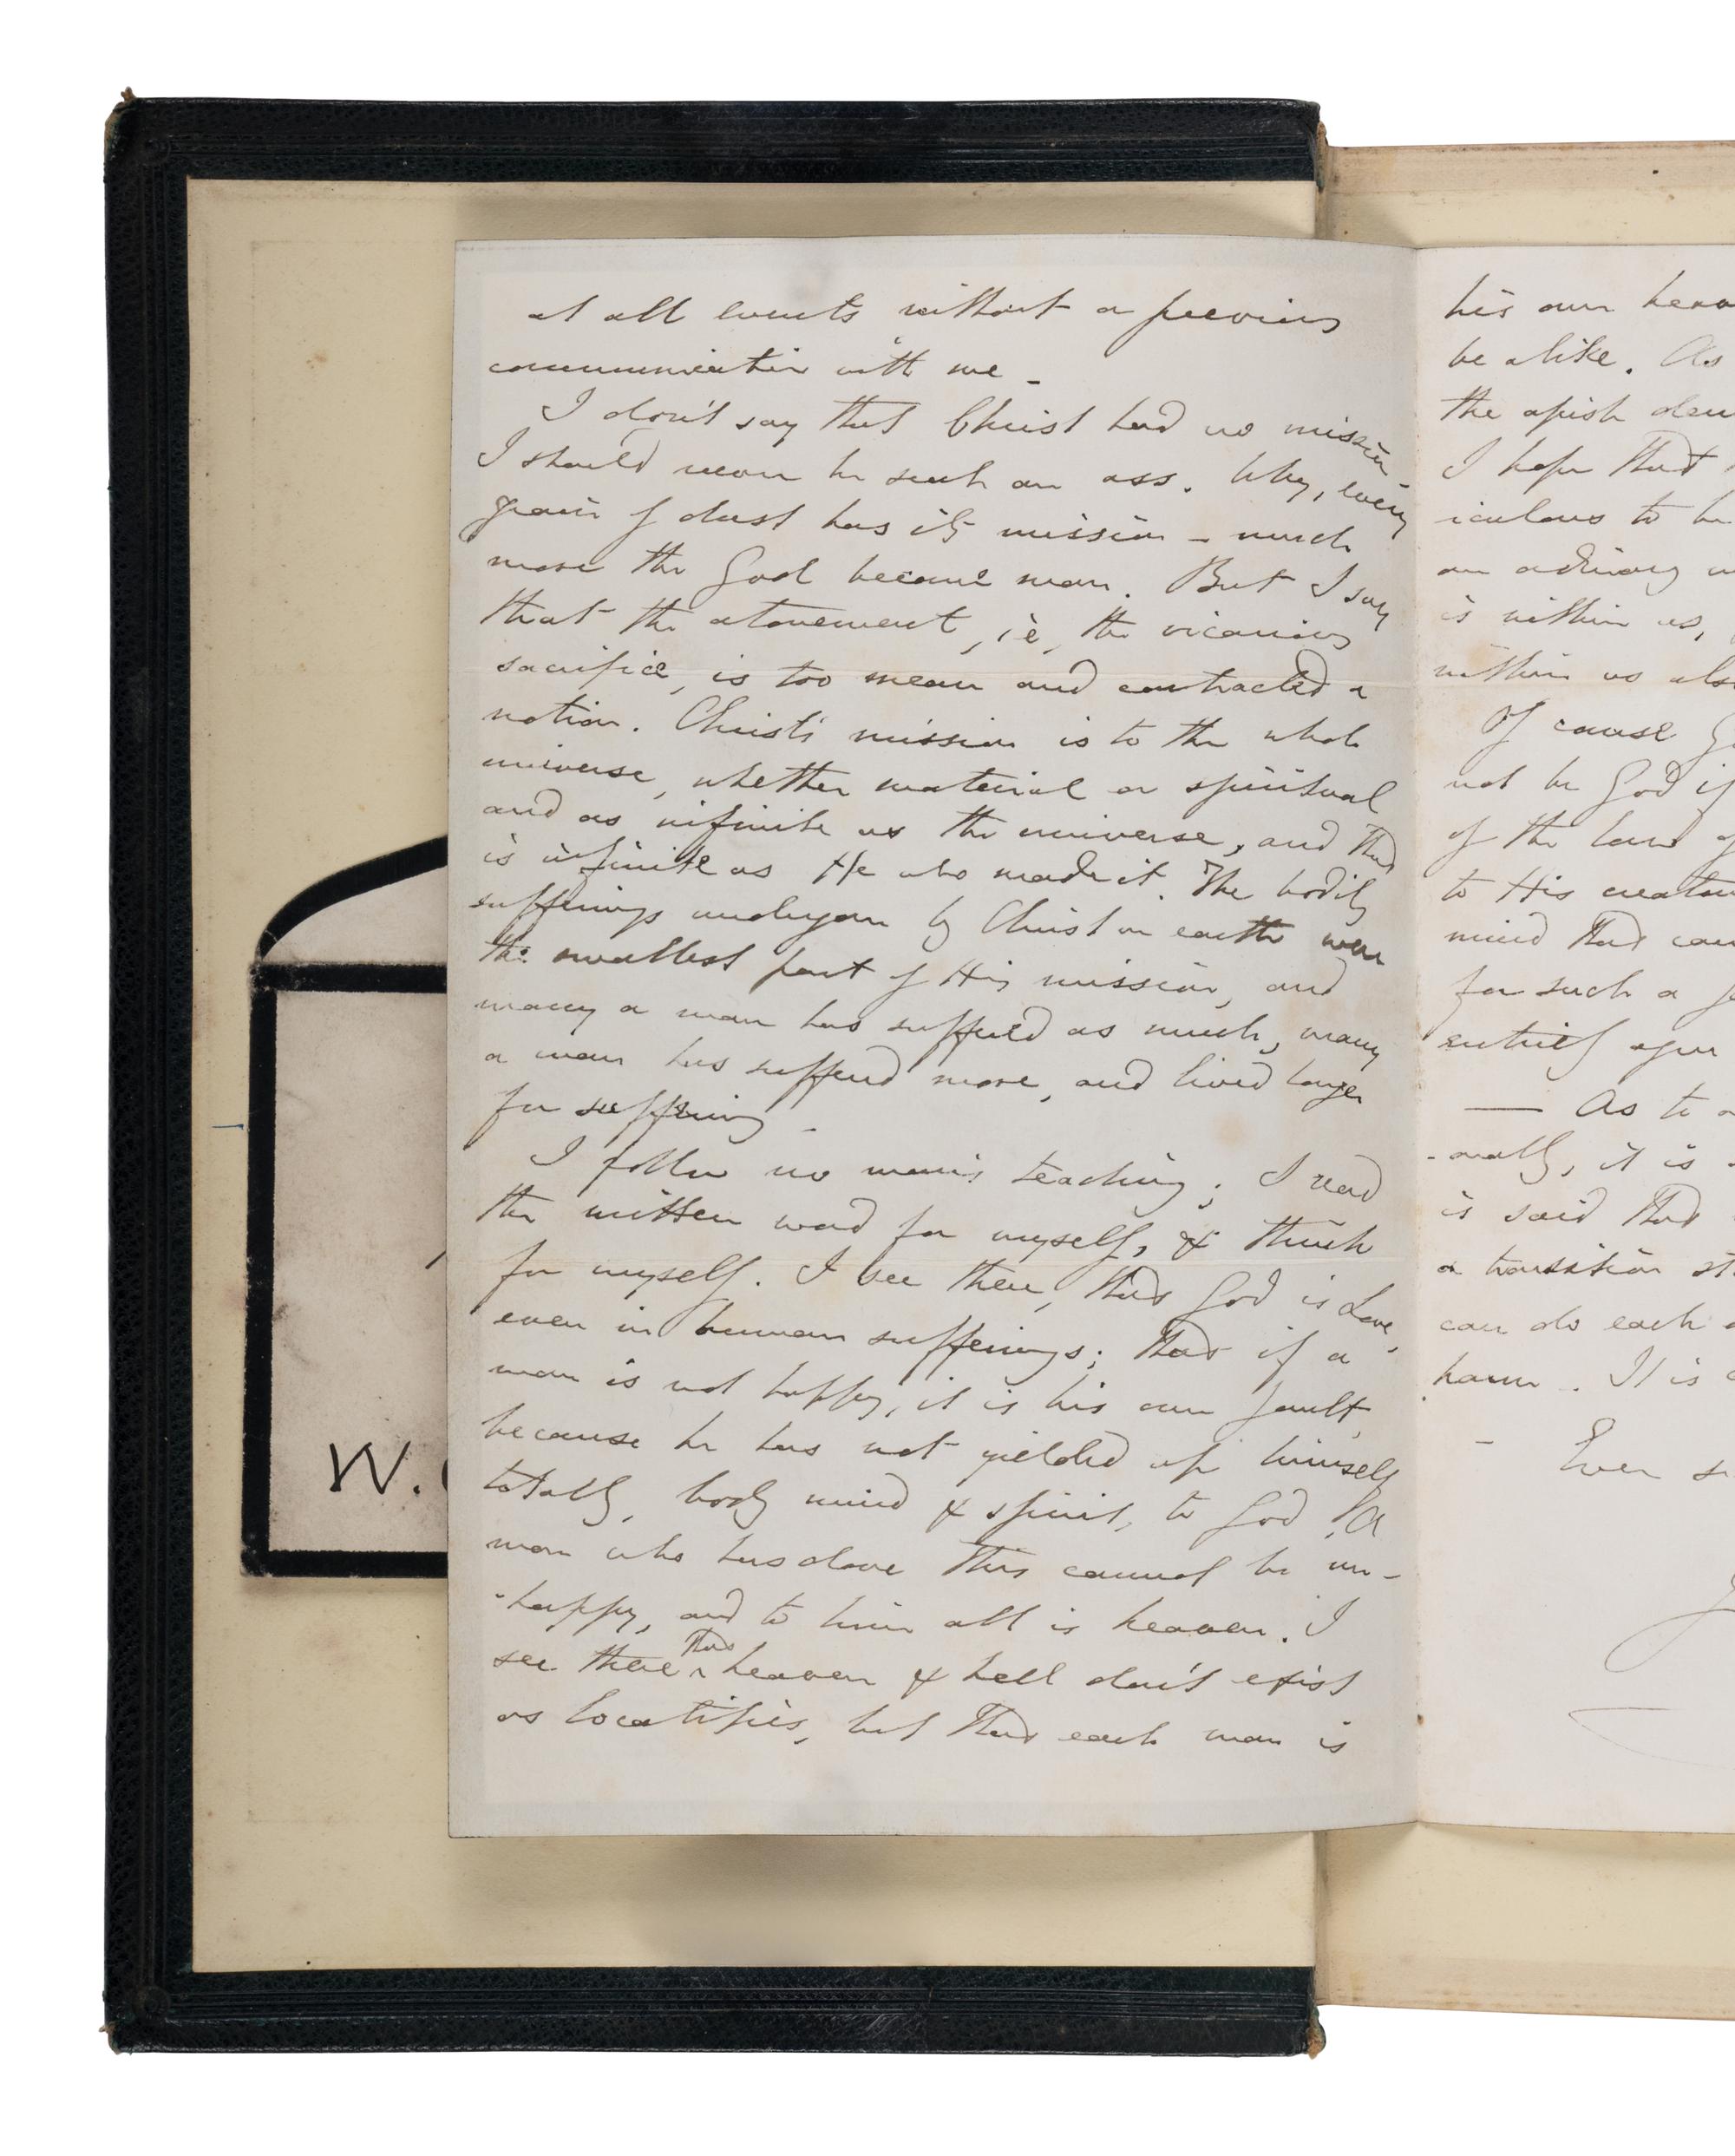 at all events without a previous
communication with me -
I don't say that Christ had no mission
I should never be such an ass. Why, every
grain of dust has its mission - much
more the God became man. But I say
that the atonement, i.e, the vicarious
sacrifice, is too mean and contracted a
notion. Christ's mission is to the whole
universe, whether material or spiritual
and as infinite as the universe, and that
is infinite as He who made it. The bodily
sufferings undergone by Christ on earth were
the smallest part of His mission, and
many a man has suffered as much, many
a man has suffered more, and lived longer
for suffering -
I follow no man's teaching; I read
the written word for myself, & think
for myself. I see there, that God is Love,
even in human sufferings; that if a
man is not happy, it is his own fault,
because he has not yielded up himself
totally, body mind & spirit, to God. A
man who has done this cannot be un-
-happy, and to him all is heaven. I
see there that heaven & hell don't exist
as localities, but that each man is
his own
be alike. As
the apish
I hope that
iculous to be
an ordinary
is within us,
within us also
Of course
not be God if
of the laws of
to His
mind that
for such a
entirely
— As to
-mally, it is
is said that
a transition
can do each
harm. It is
- Ever
W.